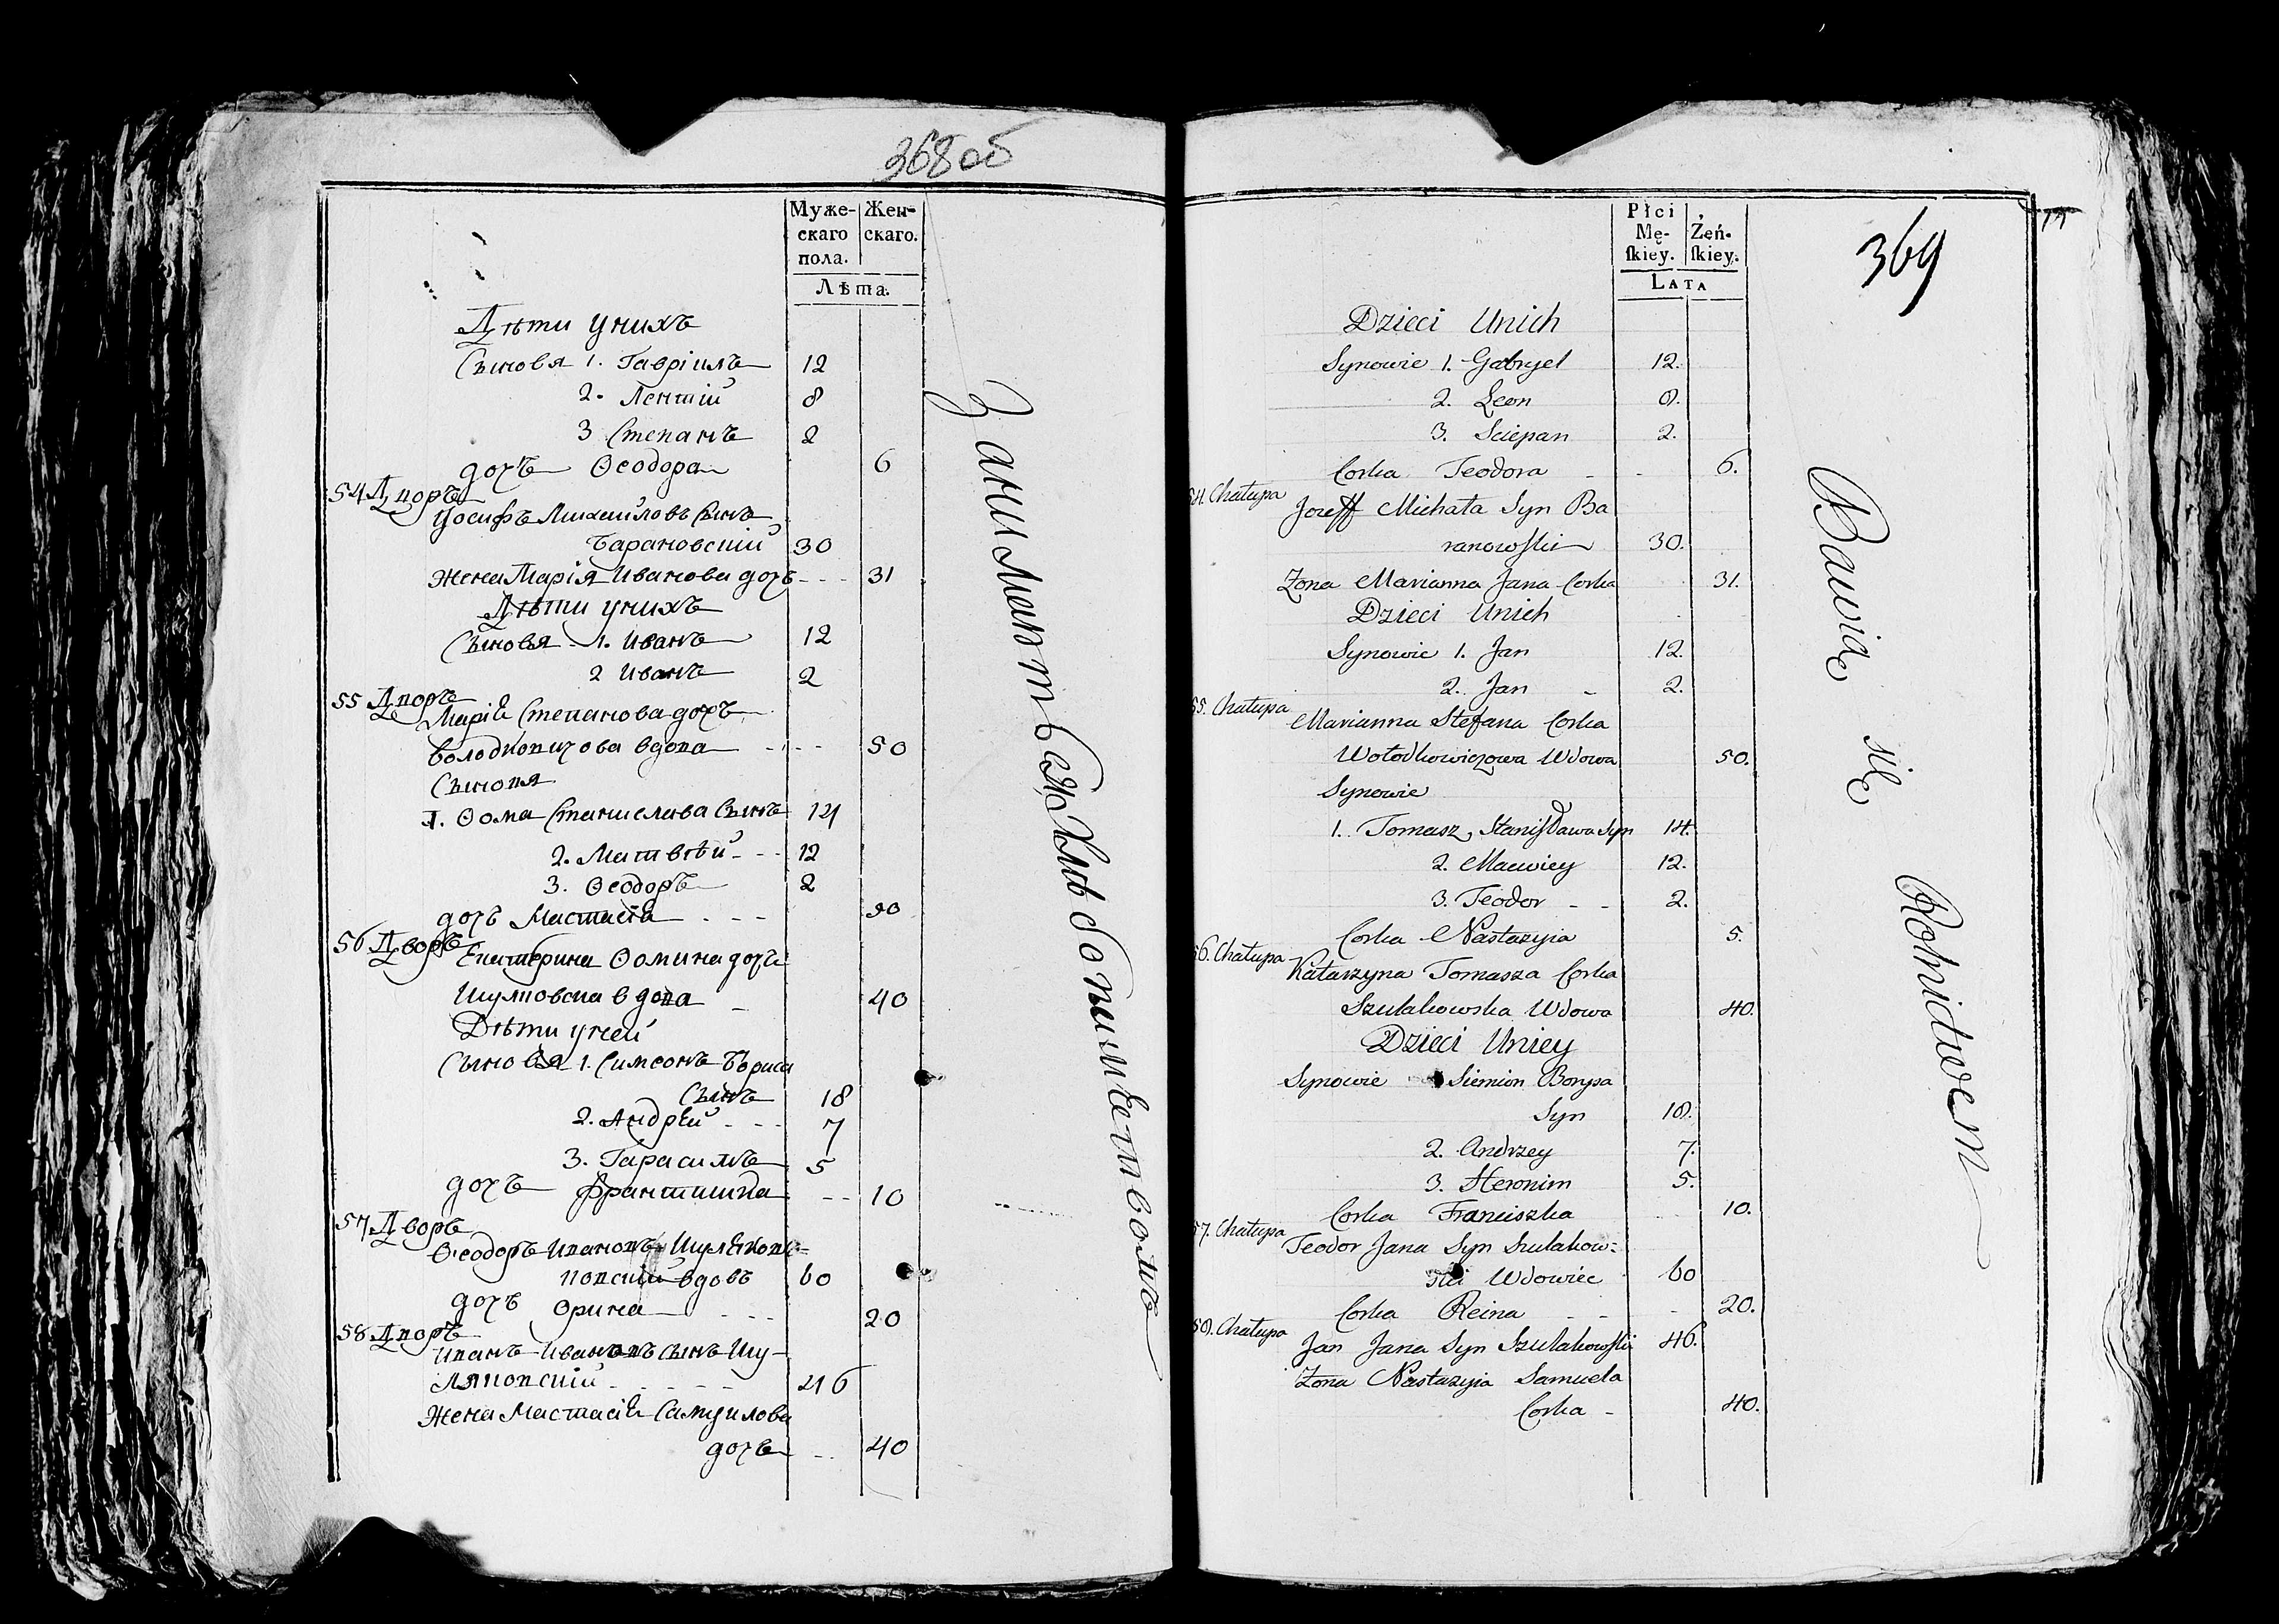 368 об
Муже- Жен-
скаго скаго.
пола.
Лѣта.
Дѣти унихъ
Сыновя 1. Гавріилъ 12
2. Лентій 8
3 Степанъ 2
дочъ Ѳеодора 6
54 Дворъ
Іосифъ Михайловъ Сынъ
Барановскій 30
Жена Марія Иванова дочъ 31
Дѣти унихъ
Сыновя 1. Иванъ 12
2 Иванъ 2
55 Дворъ
Марія Степанова дочъ
Володковичова вдова 50
Сыновя
1. Ѳома Станислава Сынъ 14
2. Матвѣй 12
3. Ѳеодоръ 2
дочъ Настасія
56 Дворъ
Екатерина Ѳомина дочъ
вдова 40
Дѣти уней
Сыновя 1. Симеонъ Бориса
Сынъ 18
2. Андрей 7
3. Гарасимъ 5
дочъ Францишка 10
57 Дворъ
Ѳеодоръ Ивановъ
вдовъ 60
дочъ Орина 20
58 Дворъ
Иванъ Ивановъ Сынъ Шу-
ляковскій 46
Жена Настасія Самуилова
дочъ 40
Занимаются Хлѣбопашествомъ
369
Płci
Mę- Żeń-
ſkiey. ſkiey.
LATA
Dzieci Unich
Synowie 1. Gabryel 12.
2. Leon 8.
3. Sciepan 2.
Corka Teodora 6.
54. Chałupa
Jozeff Michała Syn Ba
ranowſki 30.
Zona Marianna Jana Corka 31.
Dzieci Unich
Synowie 1. Jan 12.
2. Jan 2.
55. Chałupa
Marianna Stefana Corka
Wołodkowiczowa Wdowa 50.
Synowie
1. Tomasz Staniſława Syn 14.
2. Macwiey 12.
3. Teodor 2.
Corka Nastazyia 5.
56. Chałupa
Katarzyna Tomasza Corka
Szulakowska Wdowa 40.
Dzieci Uniey
Synowie Siemion Borysa
Syn 18.
2. Andrzey 7.
3. Heronim 5.
Corka Franciszka 10.
57. Chałupa
Teodor Jana Syn Szulakow:
ski Wdowiec 60
Corka Reina 20.
58. Chałupa
Jan Jana Syn Szulakowſki 46.
Zona Nastazyia Samuela
Corka 40.
Bawią się Rolnictwem